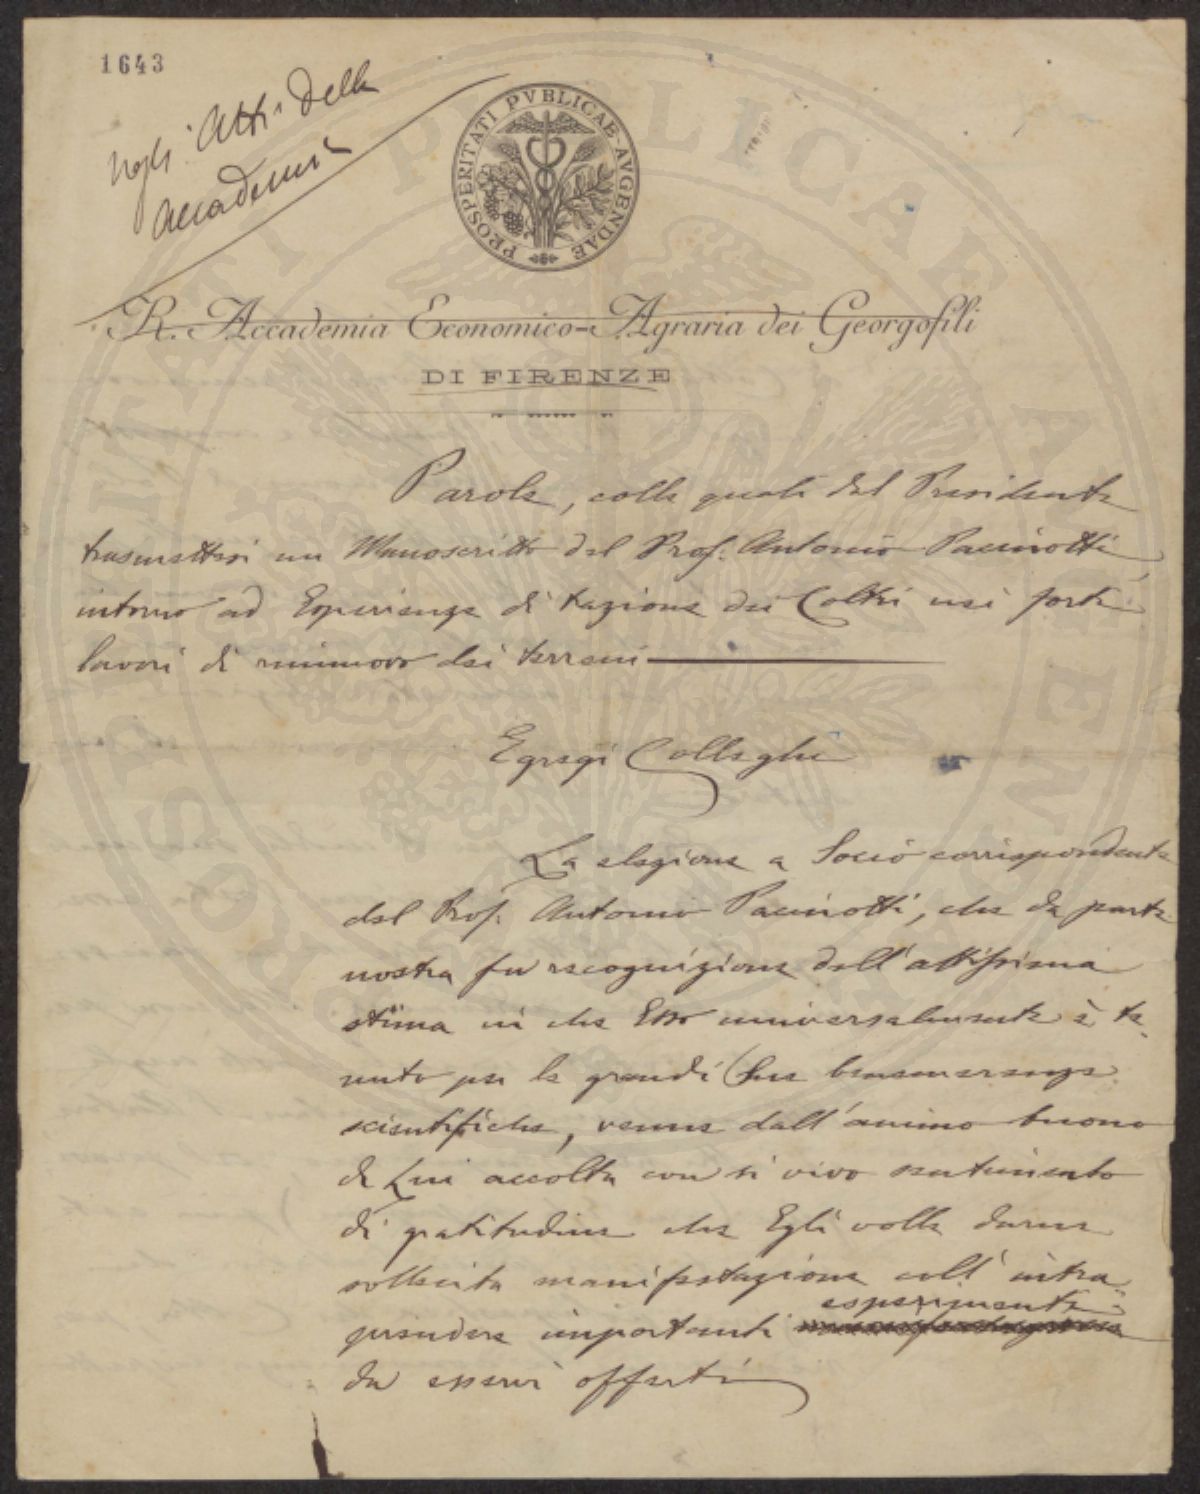 1643
negli Atti della
Accademia
PROSPERITATI PVBLICAE AVGENDAE
R. Accademia Economico-Agraria dei Georgofili
DI FIRENZE
Parole, colle quali dal Presidente
trasmettesi un Manoscritto del Prof. Antonio Pacinotti,
intorno ad Esperienze di trazione dei Coltri nei forti
lavori di rinnuovo dei terreni
Egregi Colleghi
La elezione a Socio corrispondente
del Prof. Antonio Pacinotti, che da parte
nostra fu recognizione dell'altissima
stima in che Esso universalmente è te-
nuto per le grandi Sue benemerenze
scientifiche, venne dall'animo buono
di Lui accolta con sì vivo sentimento
di gratitudine che Egli volle darne
sollecita manifestazione coll'intra-
prendere importanti esperimenti
da esservi offerti